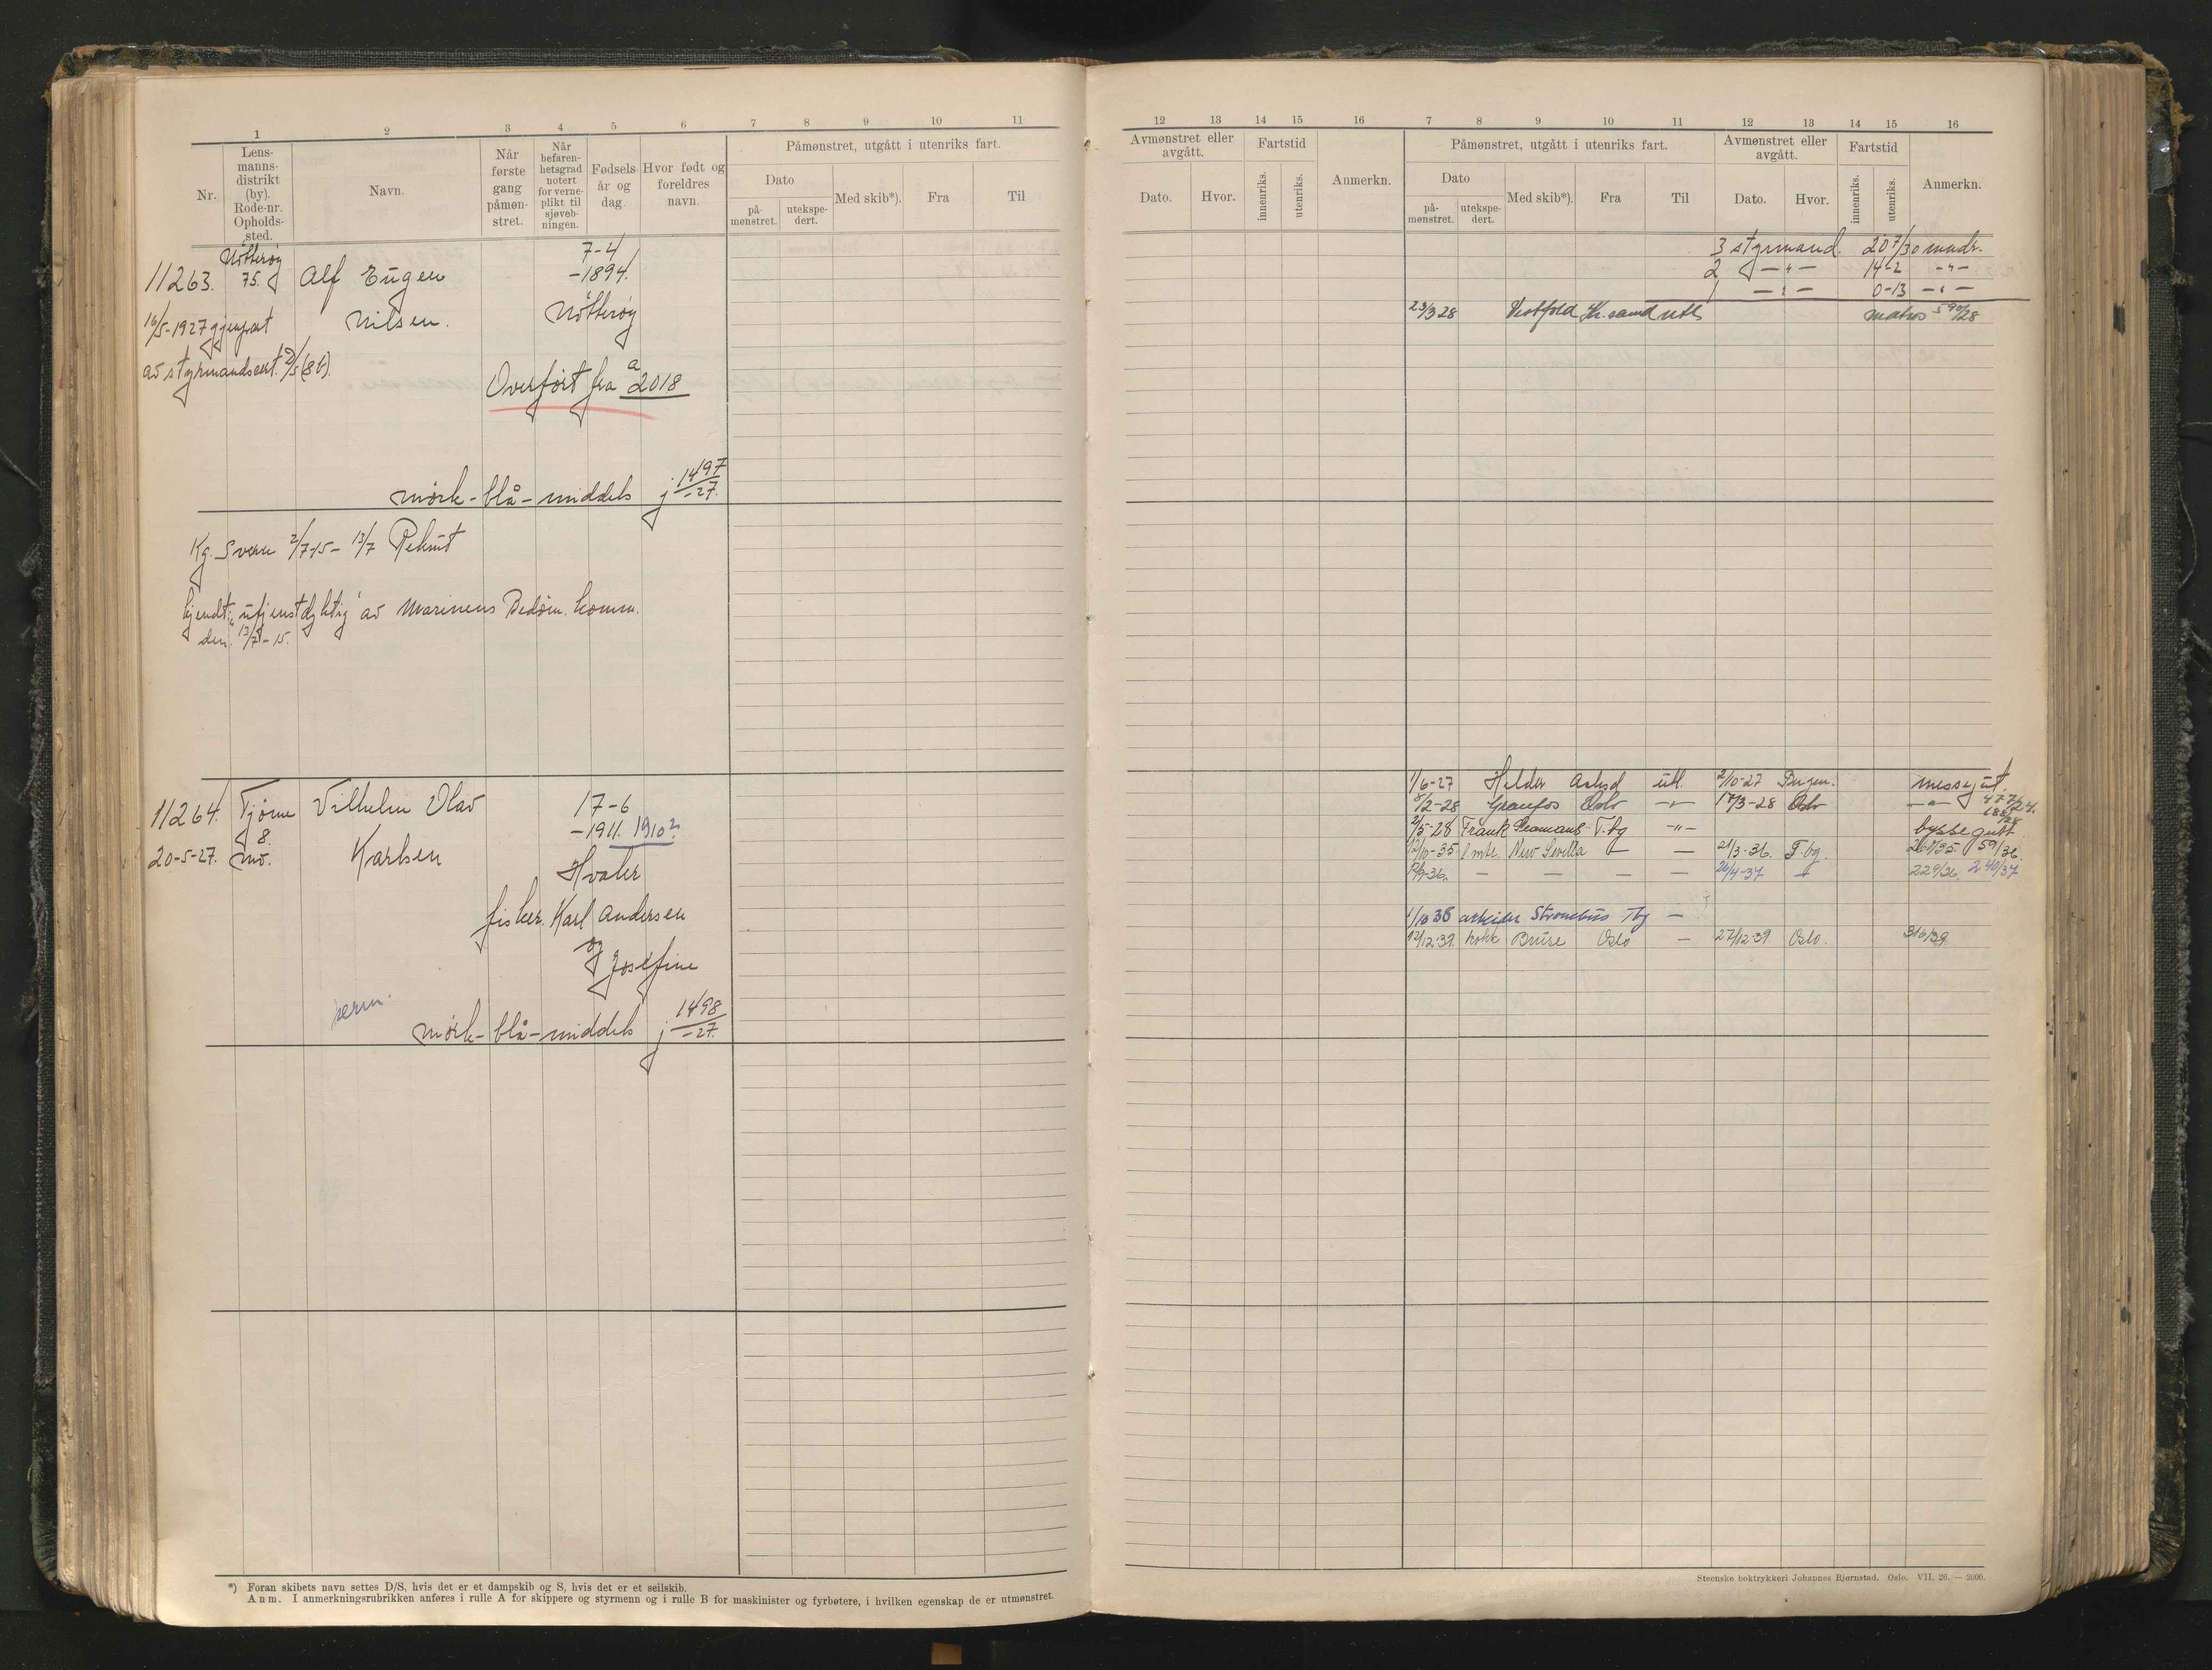 1 2 3 4 5 6 7 8 9 10 11
Nr. Lensmannsdistrikt (by). Rode-nr. Opholds-sted. Navn. Når første gang påmønstret. Når befarenhetsgrad notert for verneplikt til sjøvebningen. Fødselsår og dag. Hvor født og foreldres navn. Påmønstret, utgått i utenriks fart.
Dato Med skib*). Fra Til
påmønstret. utekspedert.
Nøtterøy 7-4
11263. 75. Alf Eugen -1894.
16/5-1927 gjenpart Nilsen. Nøtterøy
av styrmandscert.
Overført fra a 2018
mørk - blå - middels j 1497/-27.
Kg. Sverre 2/7-15 - 13/7 Rekrut
kjendt "utjenstdyktig" av Marinens Bedøm. komm.
den 13/7-15.
11264. Tjøme Vilhelm Olav 17-6
8. -1911. 1910?
20-5-27. mo. Karlsen Hvaler
fisker Karl Andersen
og
Josefine
perm.
mørk - blå - middels j 1498/-27.
*) Foran skibets navn settes D/S, hvis det er et dampskib og S, hvis det er et seilskib.
Anm. I anmerkningsrubrikken anføres i rulle A for skippere og styrmenn og i rulle B for maskinister og fyrbøtere, i hvilken egenskap de er utmønstret.
12 13 14 15 16 7 8 9 10 11 12 13 14 15 16
Avmønstret eller avgått. Fartstid Anmerkn. Påmønstret, utgått i utenriks fart. Avmønstret eller avgått. Fartstid Anmerkn.
Dato. Hvor. innenriks. utenriks. Dato Med skib*). Fra Til Dato. Hvor. innenriks. utenriks.
påmønstret. utekspedert.
3 styrmand. 20 7/30 mndr.
2 -"- 14-2 -"-
1 -"- 0-13 -"-
23/3 28 Vestfold Kr.sand utl. matros 590/28
1/6-27 Helder utl. 2/10-27 messegut.
8/2-28 Granfos Oslo -"- 17/3-28 Oslo -"- 477/27.
188/28
2/5-28 Frank Seamans T.bg -"- byssegutt
12/10-35 New Sevilla - - 21/3-36. T.bg. 261/35. 59/36.
- - - - 26/4-37 - 229/36. 240/37
1/10 38 arbeider Strombus Tbg -
12/12.39. kokk Bruse Oslo - 27/12 39. Oslo. 316/39
Steenske boktrykkeri Johannes Bjørnstad. Oslo. VII. 26. — 2600.